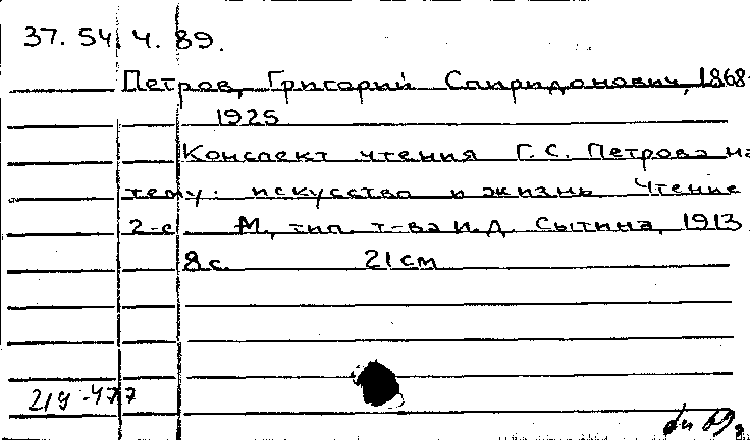 37. 54. 4. 89.
Петров, Григорий Спиридонович, 1868-
1925
Конспект чтения Г. С. Петрова на
тему: искусство и жизнь. Чтение
2-е. М., тип. т-ва И. Д. Сытина, 1913
8 с. 21 см